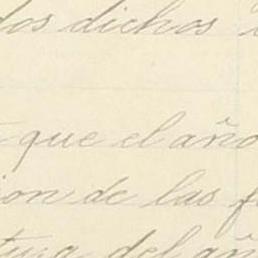 dos dichos
que el año
ion de las
tura del año